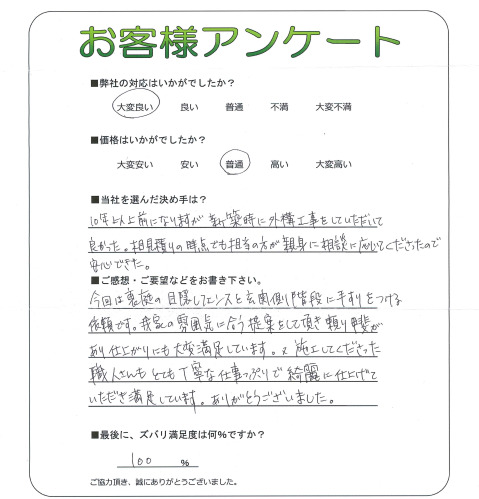 お客様アンケート
■弊社の対応はいかがでしたか？
大変良い 良い 普通 不満 大変不満
■価格はいかがでしたか？
大変安い 安い 普通 高い 大変高い
■当社を選んだ決め手は？
10年以上前になりますが新築時に外構工事をしていただいて
良かった。相見積りの時点でも担当の方が親身に相談に応じてくださったので
安心できた。
■ご感想・ご要望などをお書き下さい。
今回は裏庭の目隠しフェンスと玄関側門階段に手すりをつける
依頼です。我家の雰囲気に合う提案をして頂き頼り甲斐が
あり仕上がりにも大変満足しています。又施工してくださった
職人さんもとても丁寧な仕事っぷりで綺麗に仕上げて
いただき満足しています。ありがとうございました。
■最後に、ズバリ満足度は何％ですか？
100 ％
ご協力頂き、誠にありがとうございました。